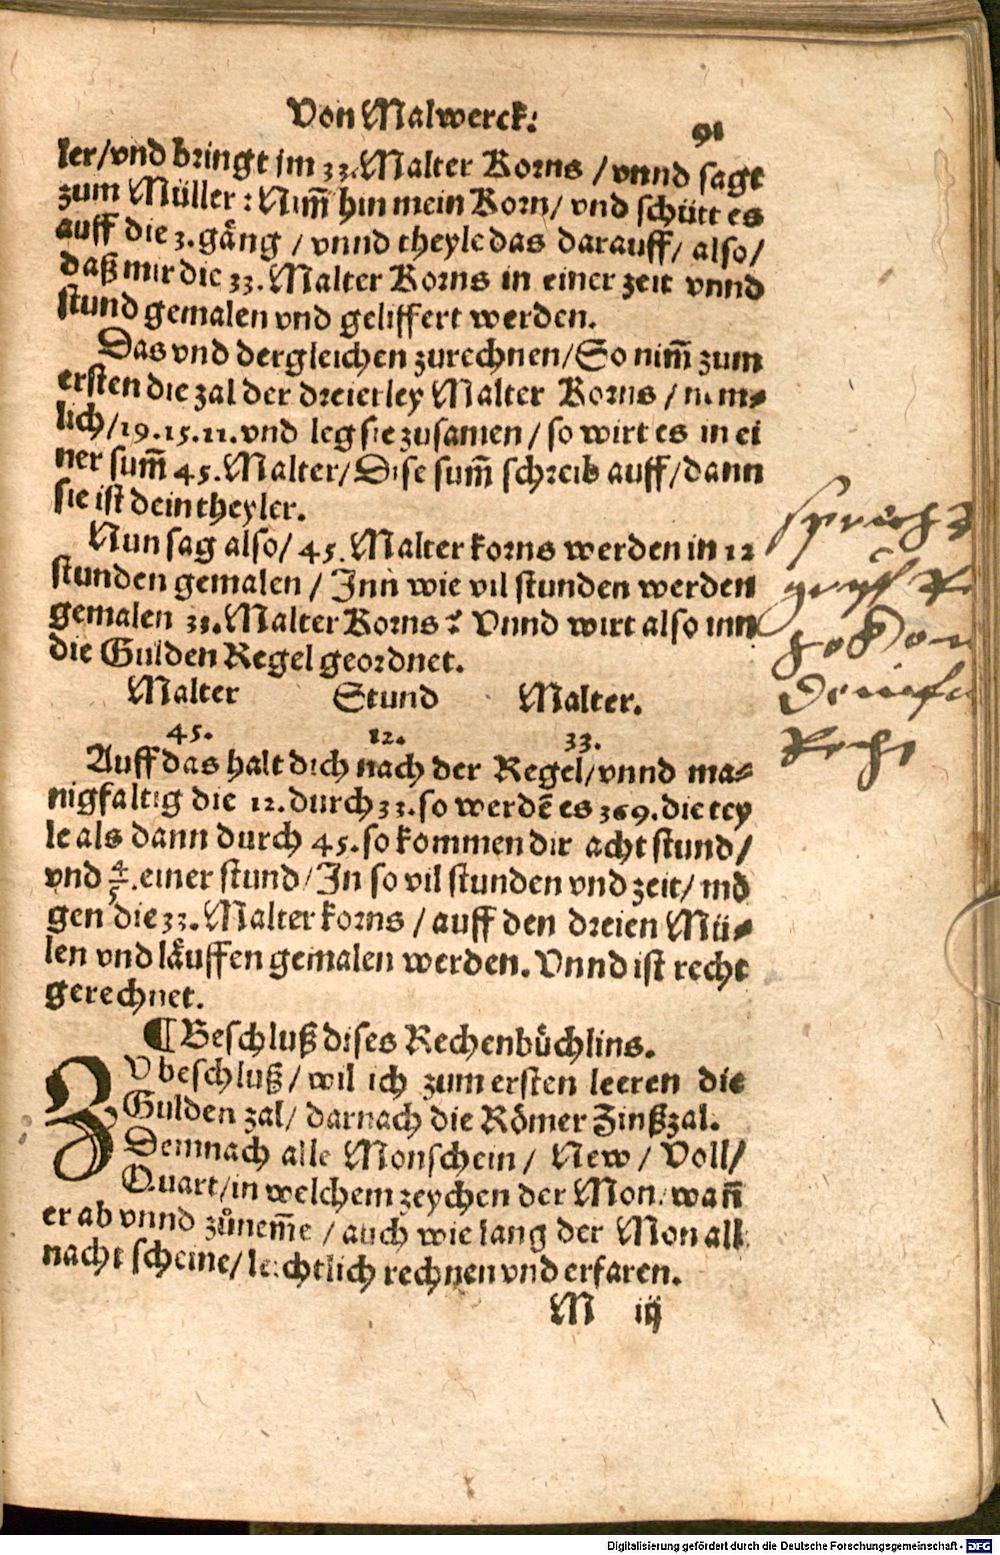 Von Malwerck:
91
ler/vnd bringt jm 33. Malter Korns / vnnd sagt
zum Müller: Nim̃ hin mein Korn/ vnd schütt es
auff die 3. gång / vnnd theyle das darauff/ also/
daß mir die 33. Malter Korns in einer zeit vnnd
stund gemalen vnd geliffert werden.
Das vnd dergleichen zurechnen/So nim̃ zum
ersten die zal der dreierley Malter Korns / nem⸗
lich/19.15.11.vnd leg sie zusamen / so wirt es in ei
ner sum̃ 45. Malter/ Dise sum̃ schreib auff/dann
sie ist dein theyler.
Nun sag also/ 45. Malter korns werden in 12
stunden gemalen / Inn wie vil stunden werden
gemalen 33. Malter Korns? Vnnd wirt also inn
die Gulden Regel geordnet.
Malter Stund Malter.
45. 12. 33.
Auff das halt dich nach der Regel/vnnd ma⸗
nigfaltig die 12. durch 33. so werdẽ es 369. die tey
le als dann durch 45. so kommen dir acht stund/
vnd 4/5. einer stund/In so vil stunden vnd zeit/ mö
gen die 33. Malter korns / auff den dreien Mü⸗
len vnd låuffen gemalen werden. Vnnd ist recht
gerechnet.
¶ Beschluß dises Rechenbüchlins.
ZV beschluß / wil ich zum ersten leeren die
Gulden zal/ darnach die Römer Zinßzal.
Demnach alle Monschein / New / Voll/
Quart/in welchem zeychen der Mon/ wañ
er ab vnnd zůnem̃e / auch wie lang der Mon all
nacht scheine/ leichtlich rechnen vnd erfaren.
M iij
Digitalisierung gefördert durch die Deutsche Forschungsgemeinschaft - DFG